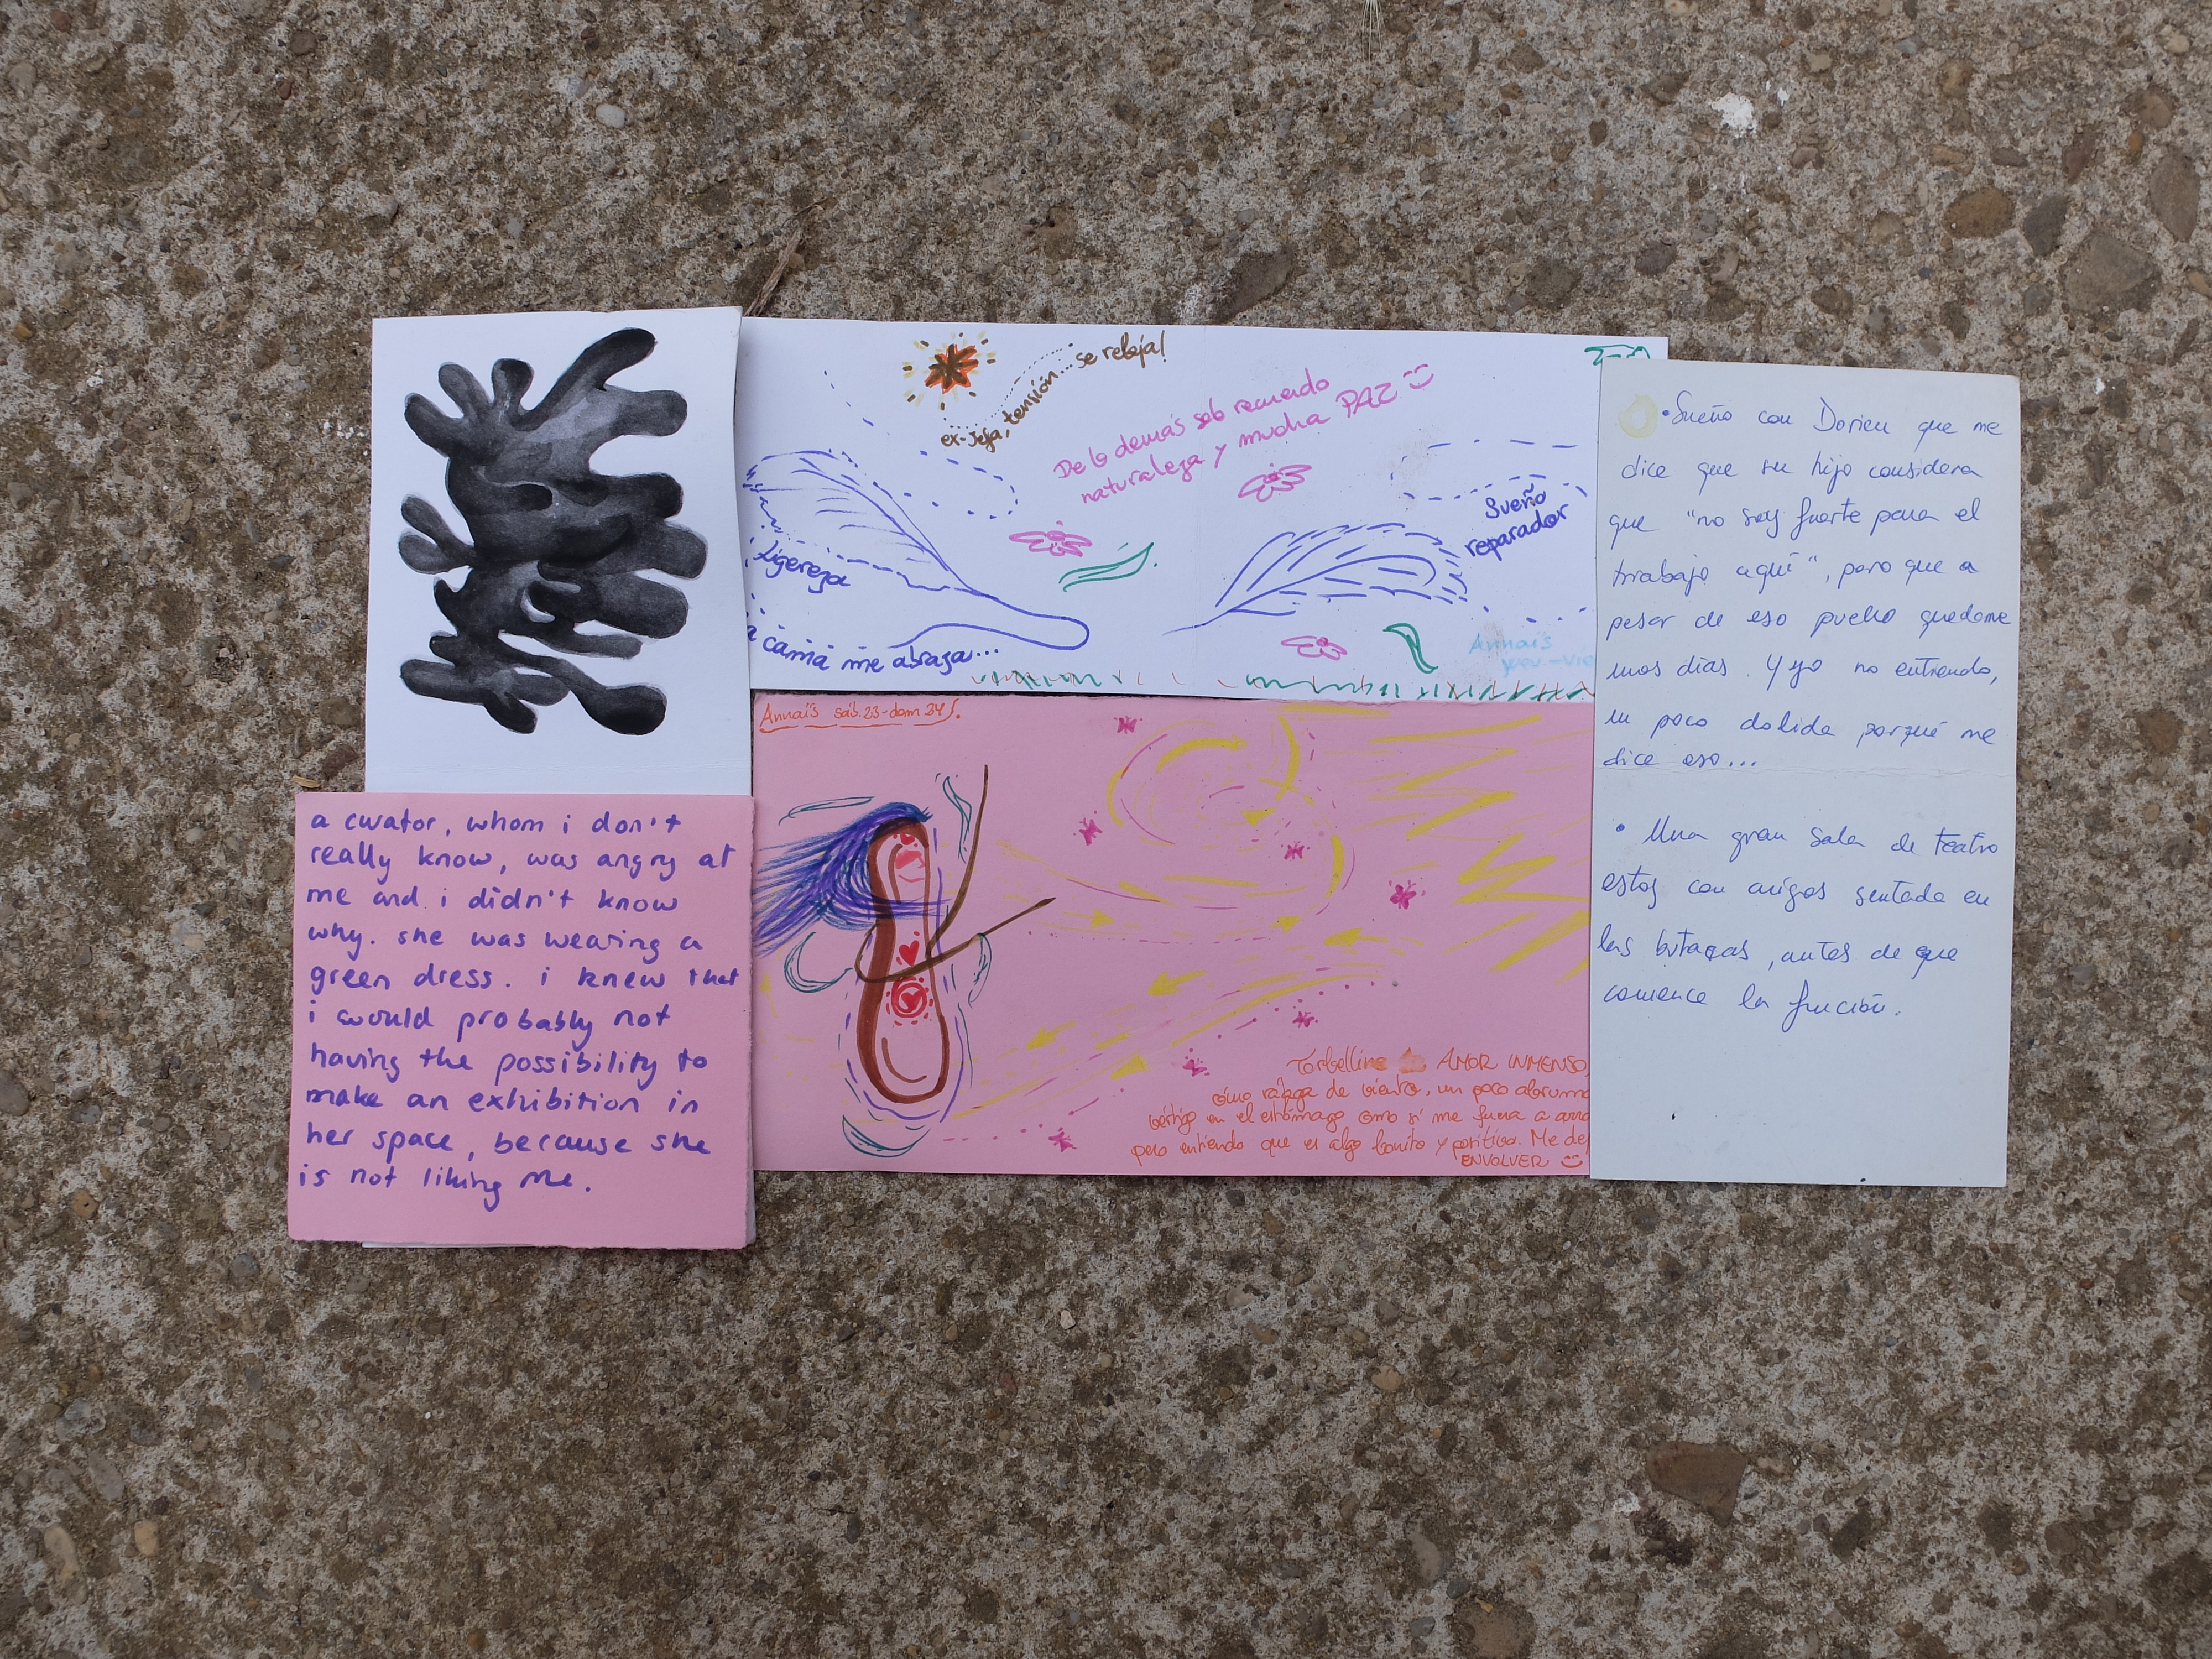 ex-jefa, tensión... se relaja!
De lo demás sólo recuerdo
naturaleza y mucha PAZ
Sueño
reparador
ligereza
cama me abraza...
Annaïs
Annaïs sáb.23-dom 24
Torbellino AMOR INMENSO,
cómo ráfaga de viento, un poco abruma
vértigo en el estómago como si me fuera a arra
pero entiendo que es algo bonito y positivo. Me de
ENVOLVER
a curator, whom i don't
really know, was angry at
me and i didn't know
why. she was wearing a
green dress. i knew that
i would probably not
having the possibility to
make an exhibition in
her space, because she
is not liking me.
• Sueño con Dorien que me
dice que su hijo considera
que "no soy fuerte para el
trabajo aquí", pero que a
pesar de eso puedo quedarme
unos días. Y yo no entiendo,
un poco dolida porqué me
dice eso...
• Una gran sala de teatro
estoy con amigos sentada en
las butacas, antes de que
comience la función.